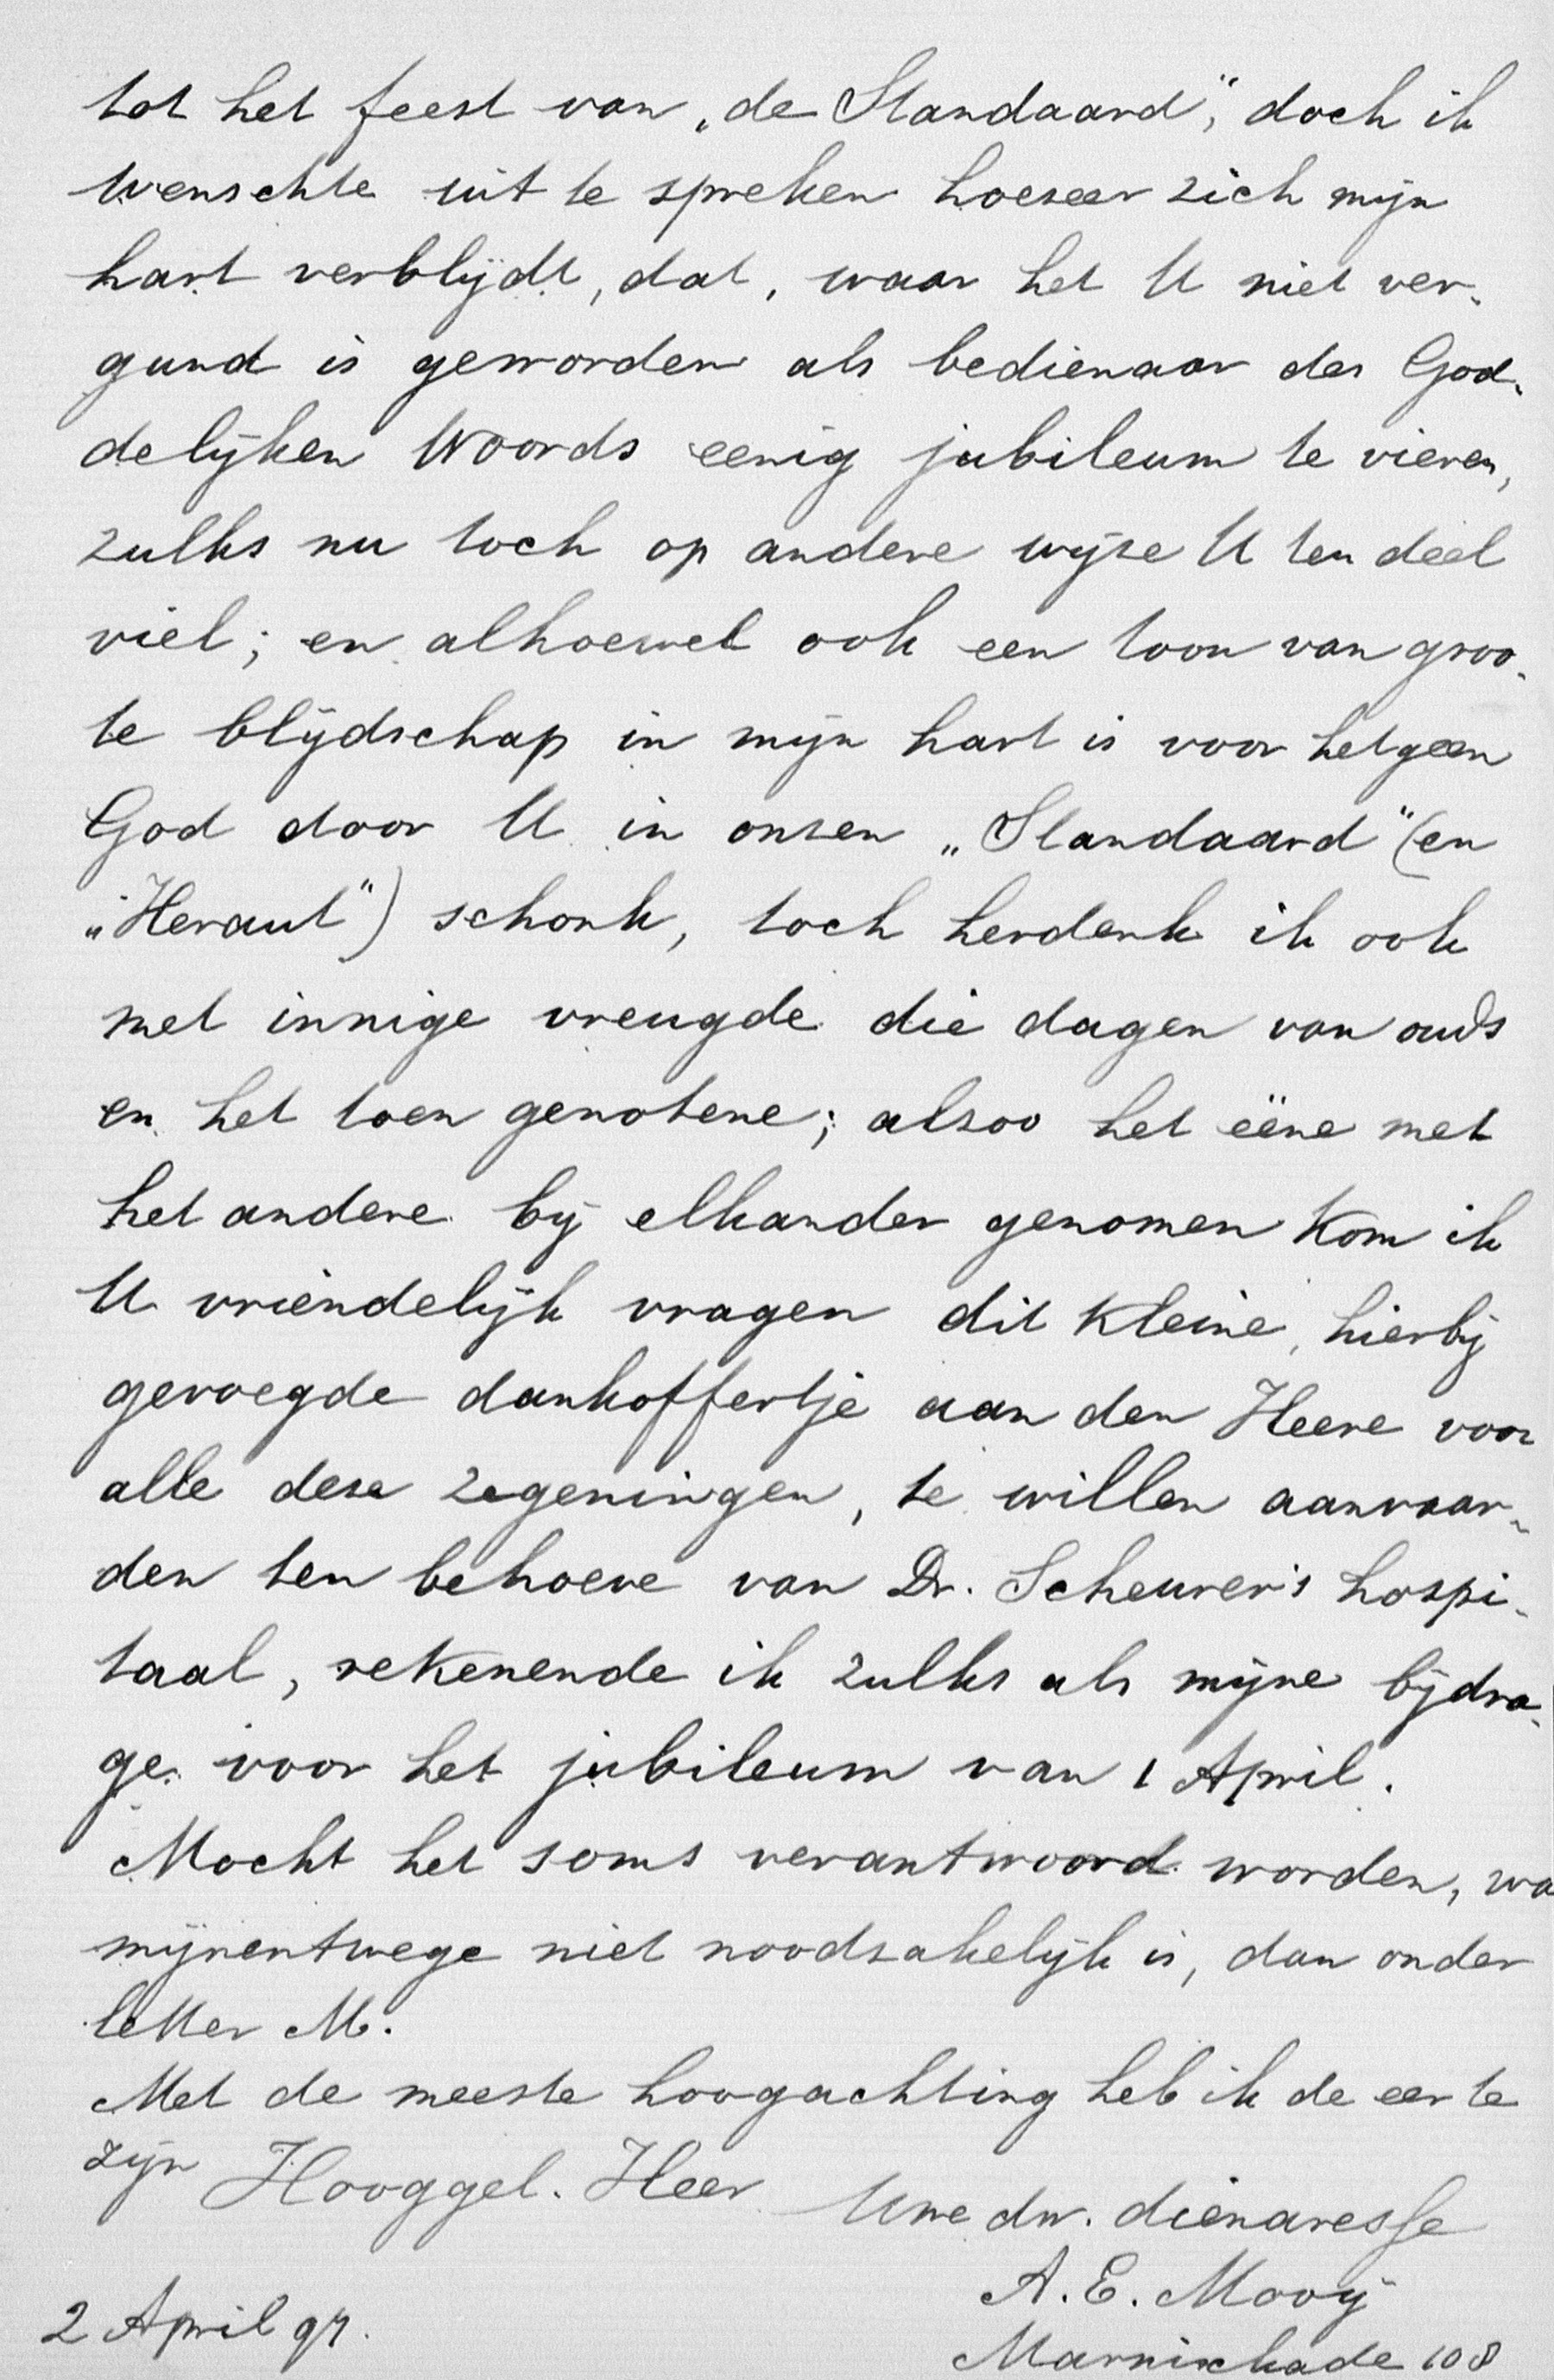 tot het feest van „de Standaard”, doch ik
wenschte uit te spreken hoezeer zich mijn
hart verblijdt, dat, waar het U niet ver-
gund is geworden als bedienaar des God-
delijken Woords eenig jubileum te vieren,
zulks nu toch op andere wijze U ten deel
viel; en alhoewel ook een toon van groo-
te blijdschap in mijn hart is voor hetgeen
God door U in onzen „Standaard” (en
„Heraut”) schonk, toch herdenk ik ook
met innige vreugde die dagen van ouds
en het toen genotene; alzoo het ééne met
het andere bij elkander genomen kom ik
U vriendelijk vragen dit kleine, hierbij
gevoegde dankoffertje aan den Heere voor
alle deze zegeningen, te willen aanvaar-
den ten behoeve van Dr. Scheurer's hospi-
taal, rekenende ik zulks als mijne bijdra-
ge voor het jubileum van 1 April.
Mocht het soms verantwoord worden, wa
mijnentwege niet noodzakelijk is, dan onder
letter M.
Met de meeste hoogachting heb ik de eer te
zijn Hooggel. Heer
Uwe dw. dienaresse
A. E. Mooij
2 April 97.
Marnixkade 108